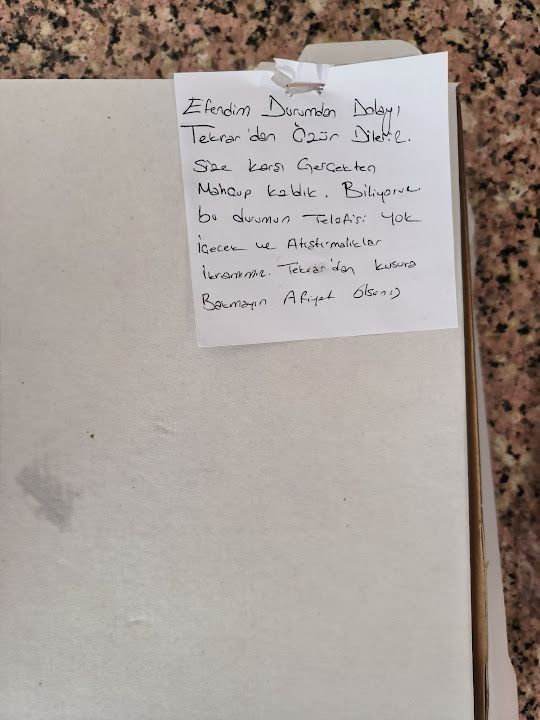 Efendim Durumdan Dolayı
Tekrar'dan Özür Dileriz.
Size Karşı Gerçekten
Mahcup kaldık. Biliyoruz
bu durumun Telafisi Yok
İçecek ve Atıştırmalıklar
İkramımız. Tekrar'dan kusura
Bakmayın Afiyet Olsun :)